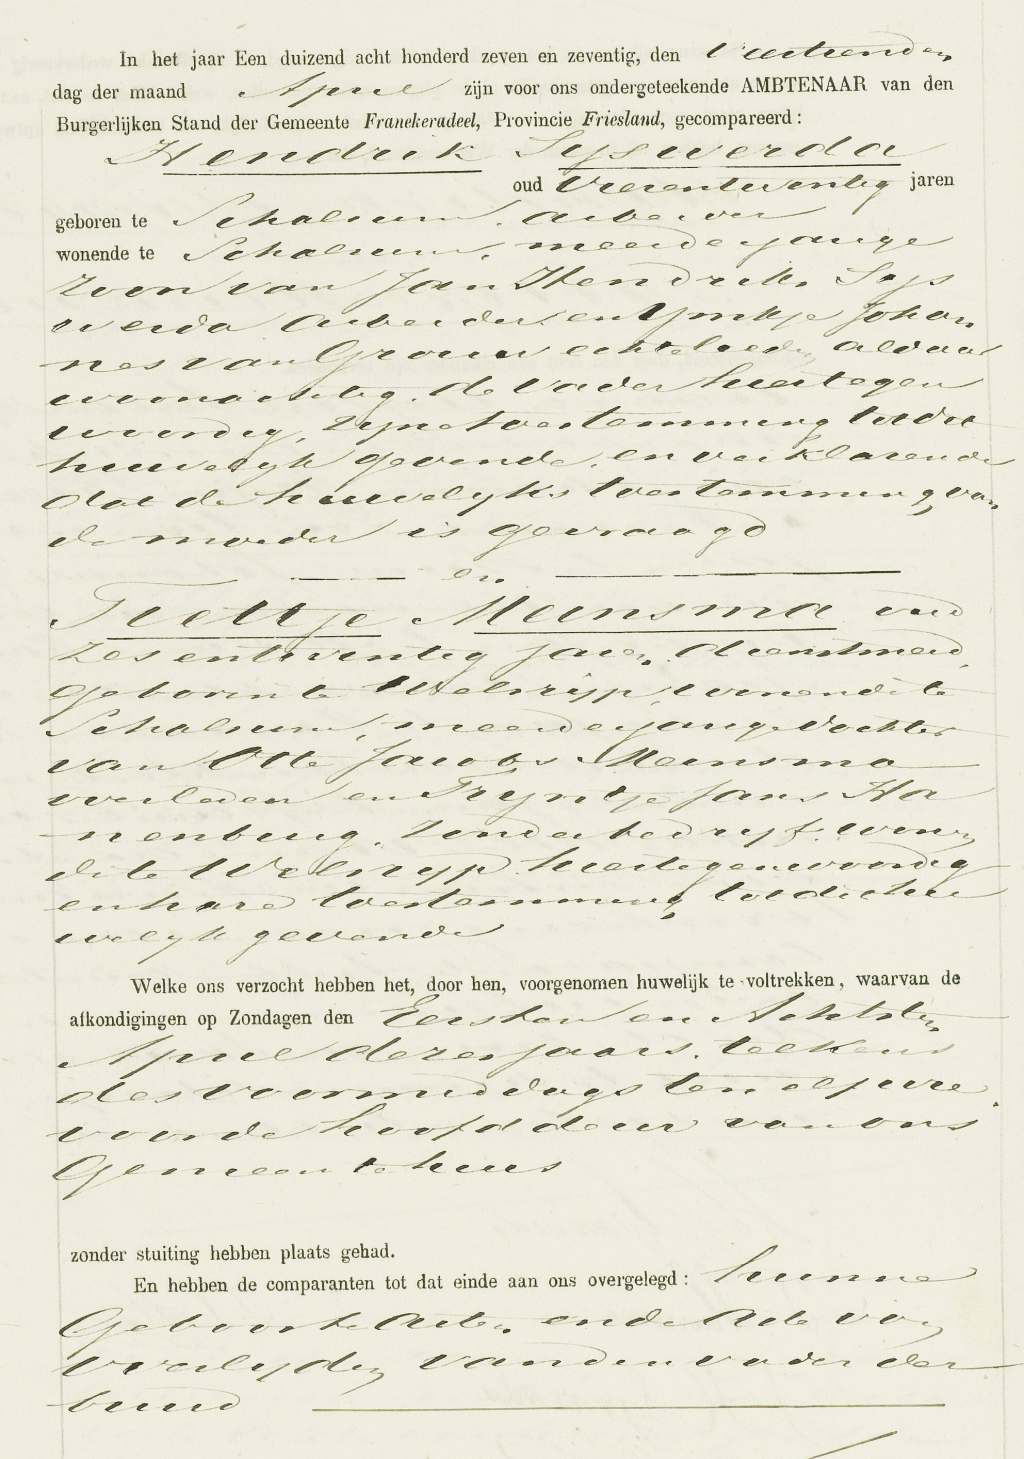 In het jaar Een duizend acht honderd zeven en zeventig, den Veertienden
dag der maand April zijn voor ons ondergeteekende AMBTENAAR van den
Burgerlijken Stand der Gemeente Franekeradeel, Provincie Friesland, gecompareerd:
Hendrik Sijswerda
oud Vierentwintig jaren
geboren te Schalsum, arbeider
wonende te Schalsum, meerderjarige
Zoon van Jan Hendriks Sijs
werda arbeider en Ymkje Johan
nes van Grouw echtelieden, aldaar
woonachtig, de Vader hiertegen
woordig, zijne toestemming tot dit
huwelijk gevende, en verklarende
dat de huwelijks toestemming van
de moeder is gevraagd
en
Tjettje Meinsma oud
Zesentwintig jaren, dienstmeid,
geboren te Welsrijp, wonende te
Schalsum, meerderjarige dochter
van Otte Jacobs Meinsma
overleden en Trijntje Jans Ha
nenburg, zonder bedrijf, wonen
de te Welsrijp hiertegenwoordig
en hare toestemming tot dit hu
welijk gevende
Welke ons verzocht hebben het, door hen, voorgenomen huwelijk te voltrekken, waarvan de
afkondigingen op Zondagen den Eersten en Achtsten
April dezes jaars, telkens
des voormiddags ten elf ure
voor de hoofddeur van ons
Gemeentehuis
zonder stuiting hebben plaats gehad.
En hebben de comparanten tot dat einde aan ons overgelegd: hunne
Geboorte Acten, en de Acte van
overlijden van den vader der
bruid